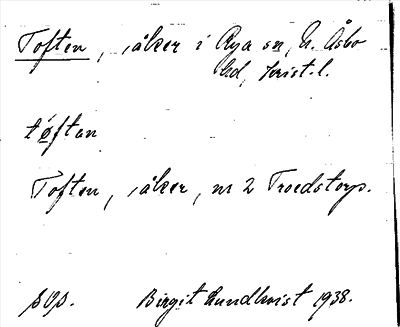 Toften, åker i Rya sn, N. Åsbo
hd, Krist. l.
tøftan
Toften, åker, nr 2 Troedstorp.
sOp. Birgit Lundkvist 1938.